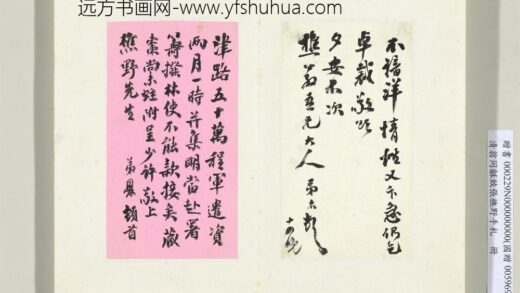 远方书画网-www.yfshuhua.com
不禱詳情祉又下急仍乞
卓裁敬頌
夕安不次
樵翁吾兄大人 弟 頓
津路五十萬程軍遣資
兩月一時并集明當赴署
籌撥林使不能款接矣葳
棗尚未蛀附呈少許敬上
樵野先生 弟 頓首
贈書 000229N000000000(國贈 005969
清翁同龢致張樵野手札 冊